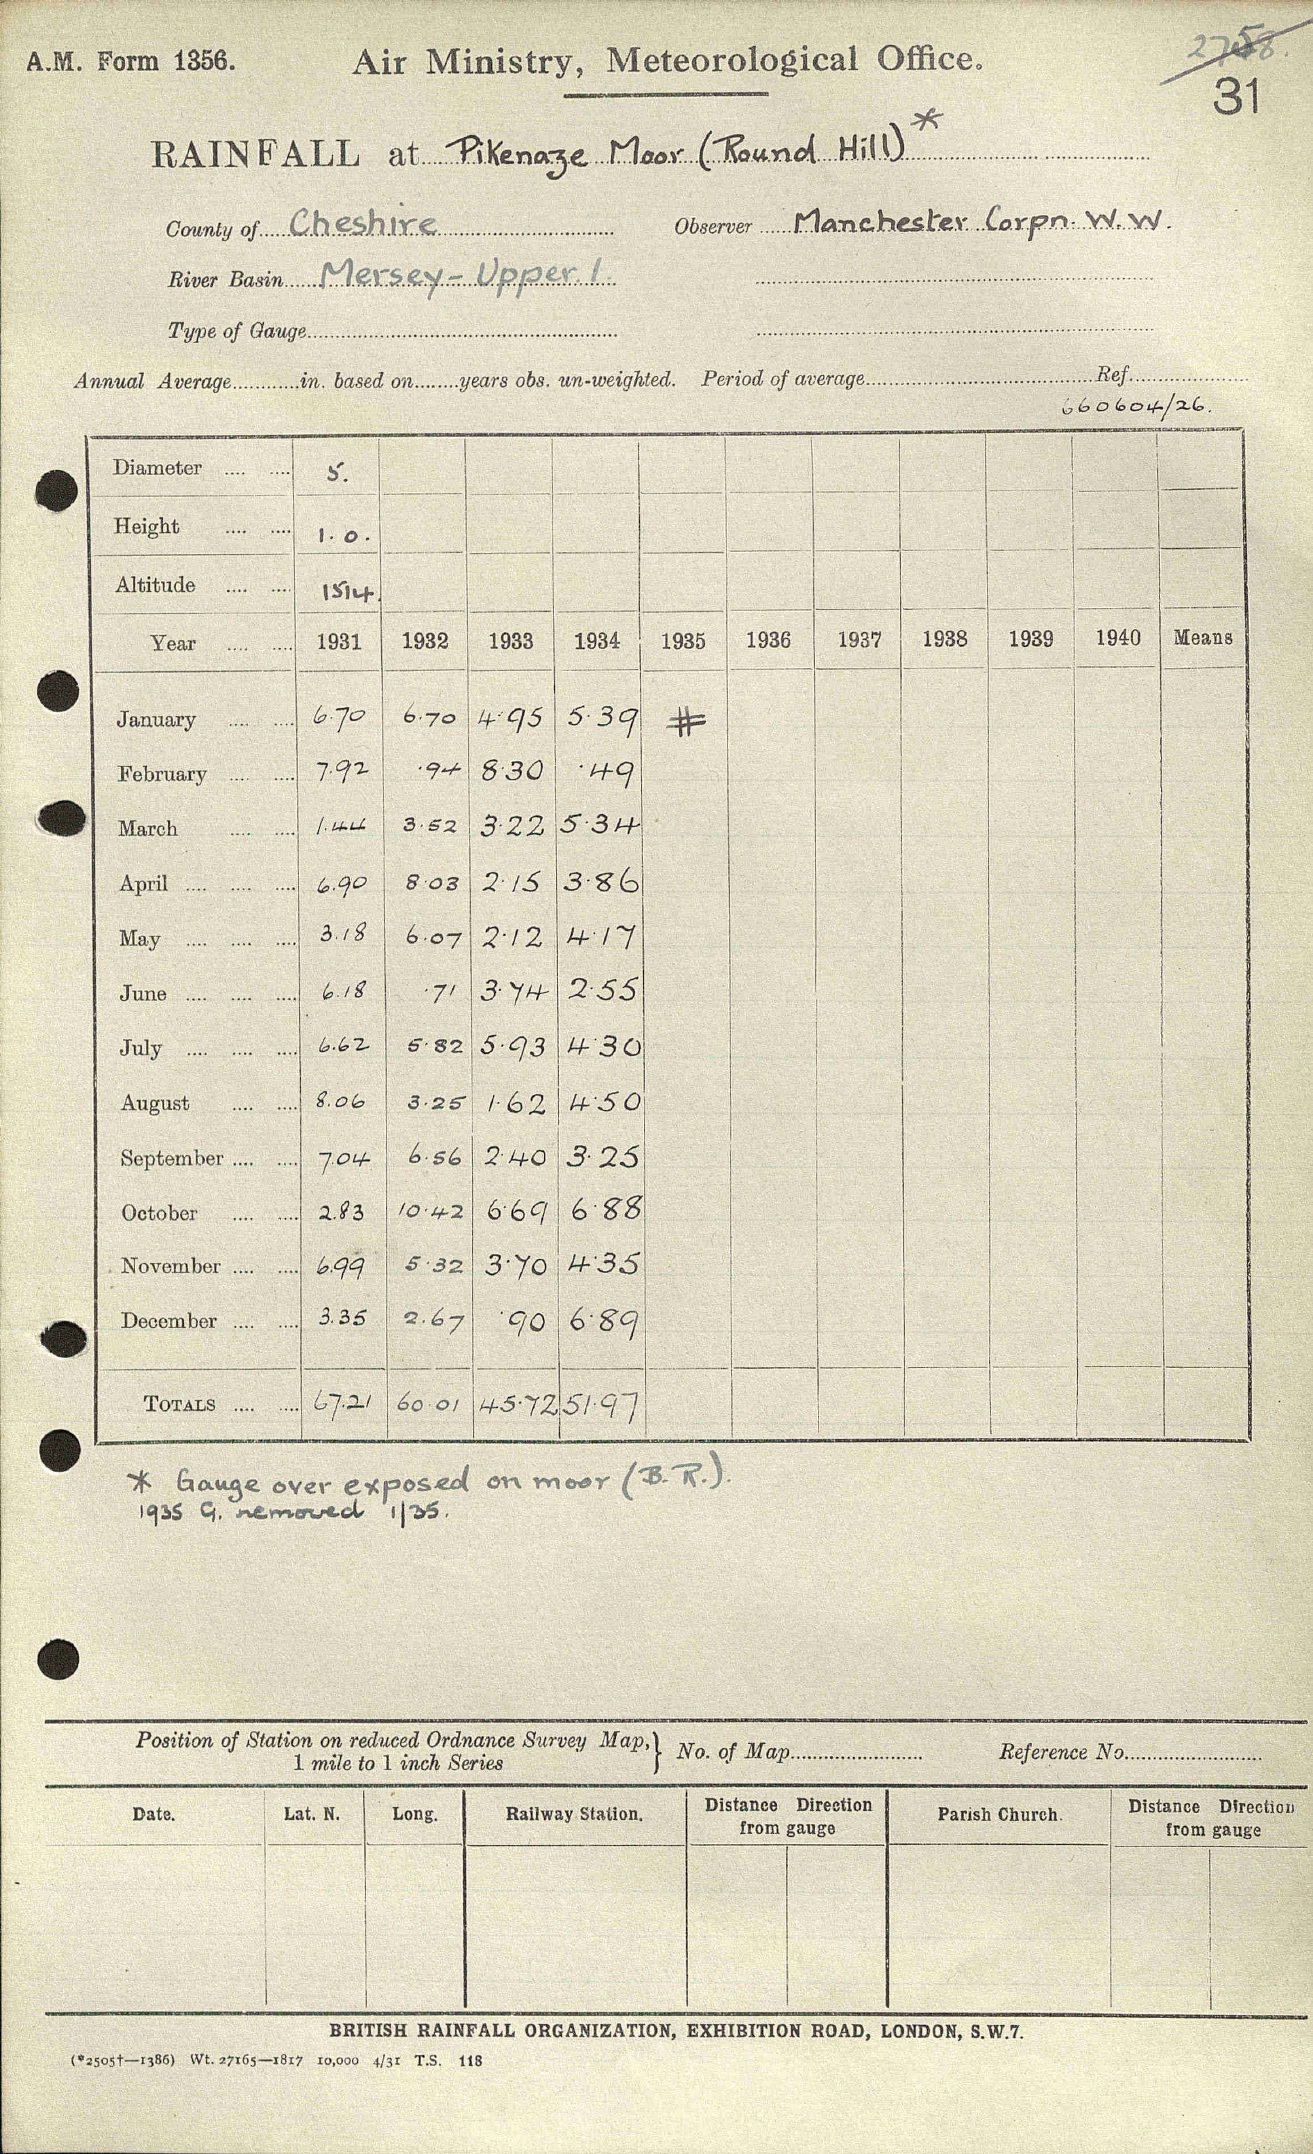 2758.
A.M. Form 1356. Air Ministry, Meteorological Office.
31
RAINFALL at Pikenaze Moor (Round Hill) *
County of Cheshire Observer Manchester Corpn. W.W.
River Basin Mersey - Upper 1.
Type of Gauge
Annual Average in. based on years obs. un-weighted. Period of average Ref.
660604/26.
Diameter 5.
Height 1.0.
Altitude 1514.
Year 1931 1932 1933 1934 1935 1936 1937 1938 1939 1940 Means
January 6.70 6.70 4.95 5.39 #
February 7.92 .94 8.30 .49
March 1.44 3.52 3.22 5.34
April 6.90 8.03 2.15 3.86
May 3.18 6.07 2.12 4.17
June 6.18 .71 3.74 2.55
July 6.62 5.82 5.93 4.30
August 8.06 3.25 1.62 4.50
September 7.04 6.56 2.40 3.25
October 2.83 10.42 6.69 6.88
November 6.99 5.32 3.70 4.35
December 3.35 2.67 .90 6.89
TOTALS 67.21 60.01 45.72 51.97
* Gauge over exposed on moor (B.R.).
1935 G. removed 1/35.
Position of Station on reduced Ordnance Survey Map, } No. of Map Reference No.
1 mile to 1 inch Series
Date. Lat. N. Long. Railway Station. Distance Direction from gauge Parish Church. Distance Direction from gauge
BRITISH RAINFALL ORGANIZATION, EXHIBITION ROAD, LONDON, S.W.7.
(*2505†—1386) Wt. 27165—1817 10,000 4/31 T.S. 118